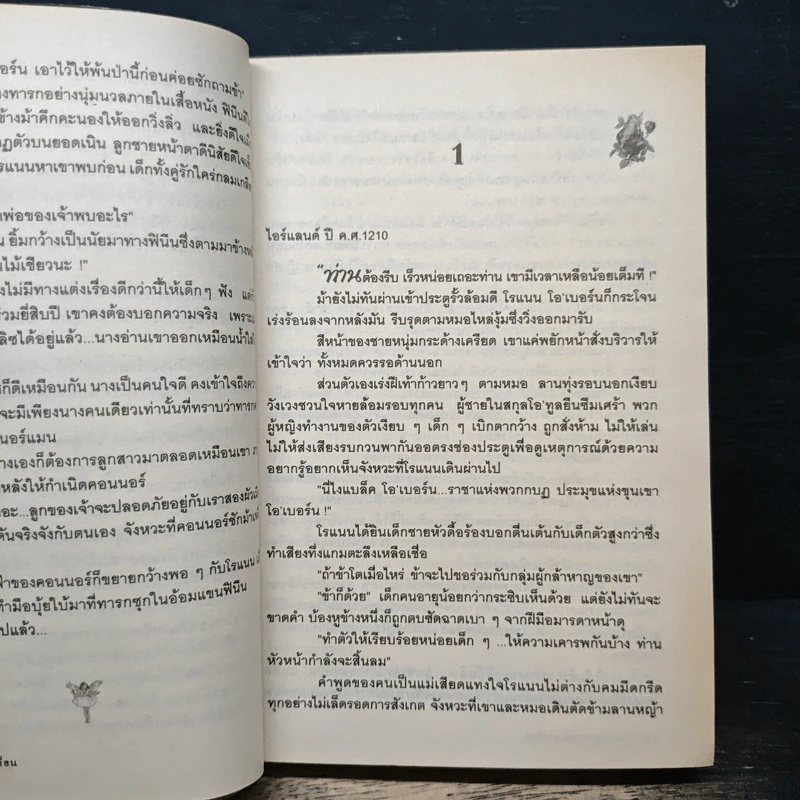 อร์น เอาไว้ให้พ้นป่านี้ก่อนค่อยซักถามข้า"
งทารกอย่างนุ่มนวลภายในเสื้อหนัง ฟินีน
ข้างม้าคึกคะนองให้ออกวิ่งลิ่ว และยิ่งดีใจ
ฏตัวบนยอดเนิน ลูกชายหน้าตาดีนิสัยดี
รแนนหาเขาพบก่อน เด็กทั้งคู่รักใคร่กลมเกลี
พ่อของเจ้าพบอะไร"
น ยิ้มกว้างเป็นนัยมาทางฟินีนซึ่งตามมาข้าง
นไม้เชียวนะ !"
งไม่มีทางแต่งเรื่องดีกว่านี้ให้เด็กๆ ฟัง แต่
ร่วมยี่สิบปี เขาคงต้องบอกความจริง เพราะ
ลิซได้อยู่แล้ว...นางอ่านเขาออกเหมือนน้ำใส
ห้ก็ดีเหมือนกัน นางเป็นคนใจดี คงเข้าใจถึง
จะมีเพียงนางคนเดียวเท่านั้นที่ทราบว่าทารก
นอร์แมน
างเองก็ต้องการลูกสาวมาตลอดเหมือนเขา
หลังให้กำเนิดคอนนอร์
าะ...ลูกของเจ้าจะปลอดภัยอยู่กับเราสองผัวเมีย
ดันจริงจังกับตนเอง จังหวะที่คอนนอร์ชักม้า
ฟ้าของคอนนอร์ก็ขยายกว้างพอ ๆ กับโรแนน
ทำมือบุ้ยใบ้มาที่ทารกซุกในอ้อมแขนฟินีน
ปแล้ว...
1
ไอร์แลนด์ ปี ค.ศ.1210
"ท่านต้องรีบ เร็วหน่อยเถอะท่าน เขามีเวลาเหลือน้อยเต็มที !"
ม้ายังไม่ทันผ่านเข้าประตูรั้วล้อมดี โรแนน โอ'เบอร์นก็กระโจน
เร่งร้อนลงจากหลังมัน รีบรุดตามหมอไหล่งุ้มซึ่งวิ่งออกมารับ
สีหน้าของชายหนุ่มกระด้างเครียด เขาแค่พยักหน้าสั่งบริวารให้
เข้าใจว่า ทั้งหมดควรรอด้านนอก
ส่วนตัวเองเร่งฝีเท้าก้าวยาวๆ ตามหมอ ลานทุ่งรอบนอกเงียบ
วังเวงชวนใจหายล้อมรอบทุกคน ผู้ชายในสกุลโอ'ทูลยืนซึมเศร้า พวก
ผู้หญิงทำงานของตัวเงียบ ๆ เด็ก ๆ เบิกตากว้าง ถูกสั่งห้าม ไม่ให้เล่น
ไม่ให้ส่งเสียงรบกวนพากันออตรงช่องประตูเพื่อดูเหตุการณ์ด้วยความ
อยากรู้อยากเห็นจังหวะที่โรแนนเดินผ่านไป
"นี่ไงแบล็ค โอ'เบอร์น...ราชาแห่งพวกกบฏ ประมุขแห่งขุนเขา
โอ'เบอร์น !"
โรแนนได้ยินเด็กชายหัวดื้อร้องบอกตื่นเต้นกับเด็กตัวสูงกว่าซึ่ง
ทำเสียงทึ่งแกมตะลึงเหลือเชื่อ
"ถ้าข้าโตเมื่อไหร่ ข้าจะไปขอร่วมกับกลุ่มผู้กล้าหาญของเขา"
"ข้าก็ด้วย" เด็กคนอายุน้อยกว่ากระซิบเห็นด้วย แต่ยังไม่ทันจะ
ขาดคำ บ้องหูข้างหนึ่งก็ถูกตบซัดฉาดเบา ๆ จากฝีมือมารดาหน้าดุ
"ทำตัวให้เรียบร้อยหน่อยเด็ก ๆ ...ให้ความเคารพกันบ้าง ท่าน
หัวหน้ากำลังจะสิ้นลม"
คำพูดของคนเป็นแม่เสียดแทงใจโรแนนไม่ต่างกับคมมีดกรีด
ทุกอย่างไม่เล็ดรอดการสังเกต จังหวะที่เขาและหมอเดินตัดข้ามลานหญ้า